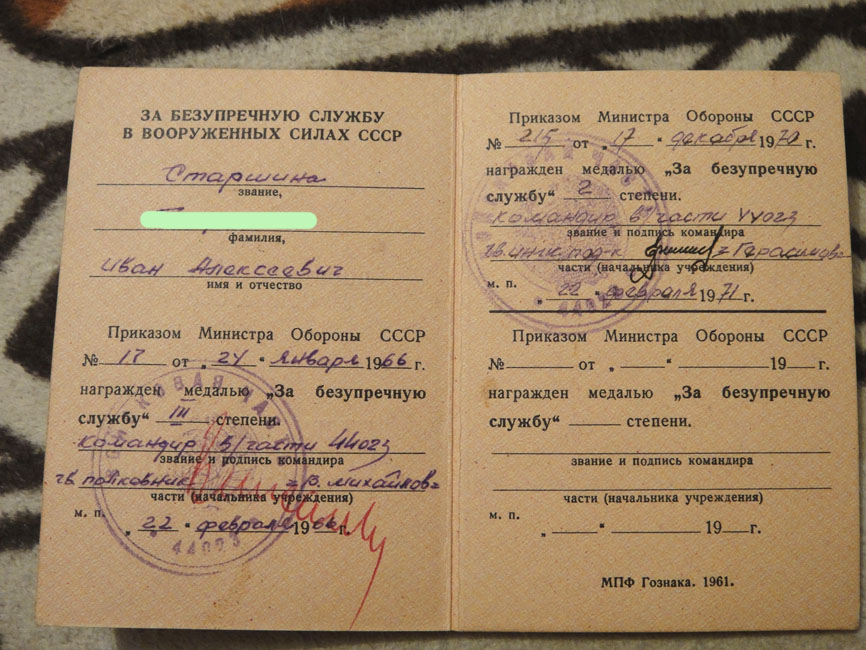 ЗА БЕЗУПРЕЧНУЮ СЛУЖБУ
В ВООРУЖЕННЫХ СИЛАХ СССР
Старшина
звание,
фамилия,
Иван Алексеевич
имя и отчество
Приказом Министра Обороны СССР
№ 17 от „24“ января 1966 г.
награжден медалью „За безупречную
службу“ III степени.
командир в/части 44023
звание и подпись командира
гв. полковник =В. Михайлов=
части (начальника учреждения)
м. п.
„22“ февраля 1966 г.
44023
Приказом Министра Обороны СССР
№ 215 от „17“ декабря 1970 г.
награжден медалью „За безупречную
службу“ 2 степени.
командир в/части 44023
звание и подпись командира
гв. инж. под-к
части (начальника учреждения)
м. п.
„22“ февраля 1971 г.
44023
Приказом Министра Обороны СССР
№ от „ “ 19 г.
награжден медалью „За безупречную
службу“ степени.
звание и подпись командира
части (начальника учреждения)
м. п.
„ “ 19 г.
МПФ Гознака. 1961.